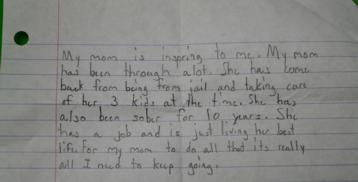 My mom is inspring to me. My mom
has been through alot. She has come
back from being from jail and taking care
of her 3 kids at the time. She has
also been sober for 10 years. She
has a job and is just living her best
life. For my mom to do all that its really
all I need to keep going.